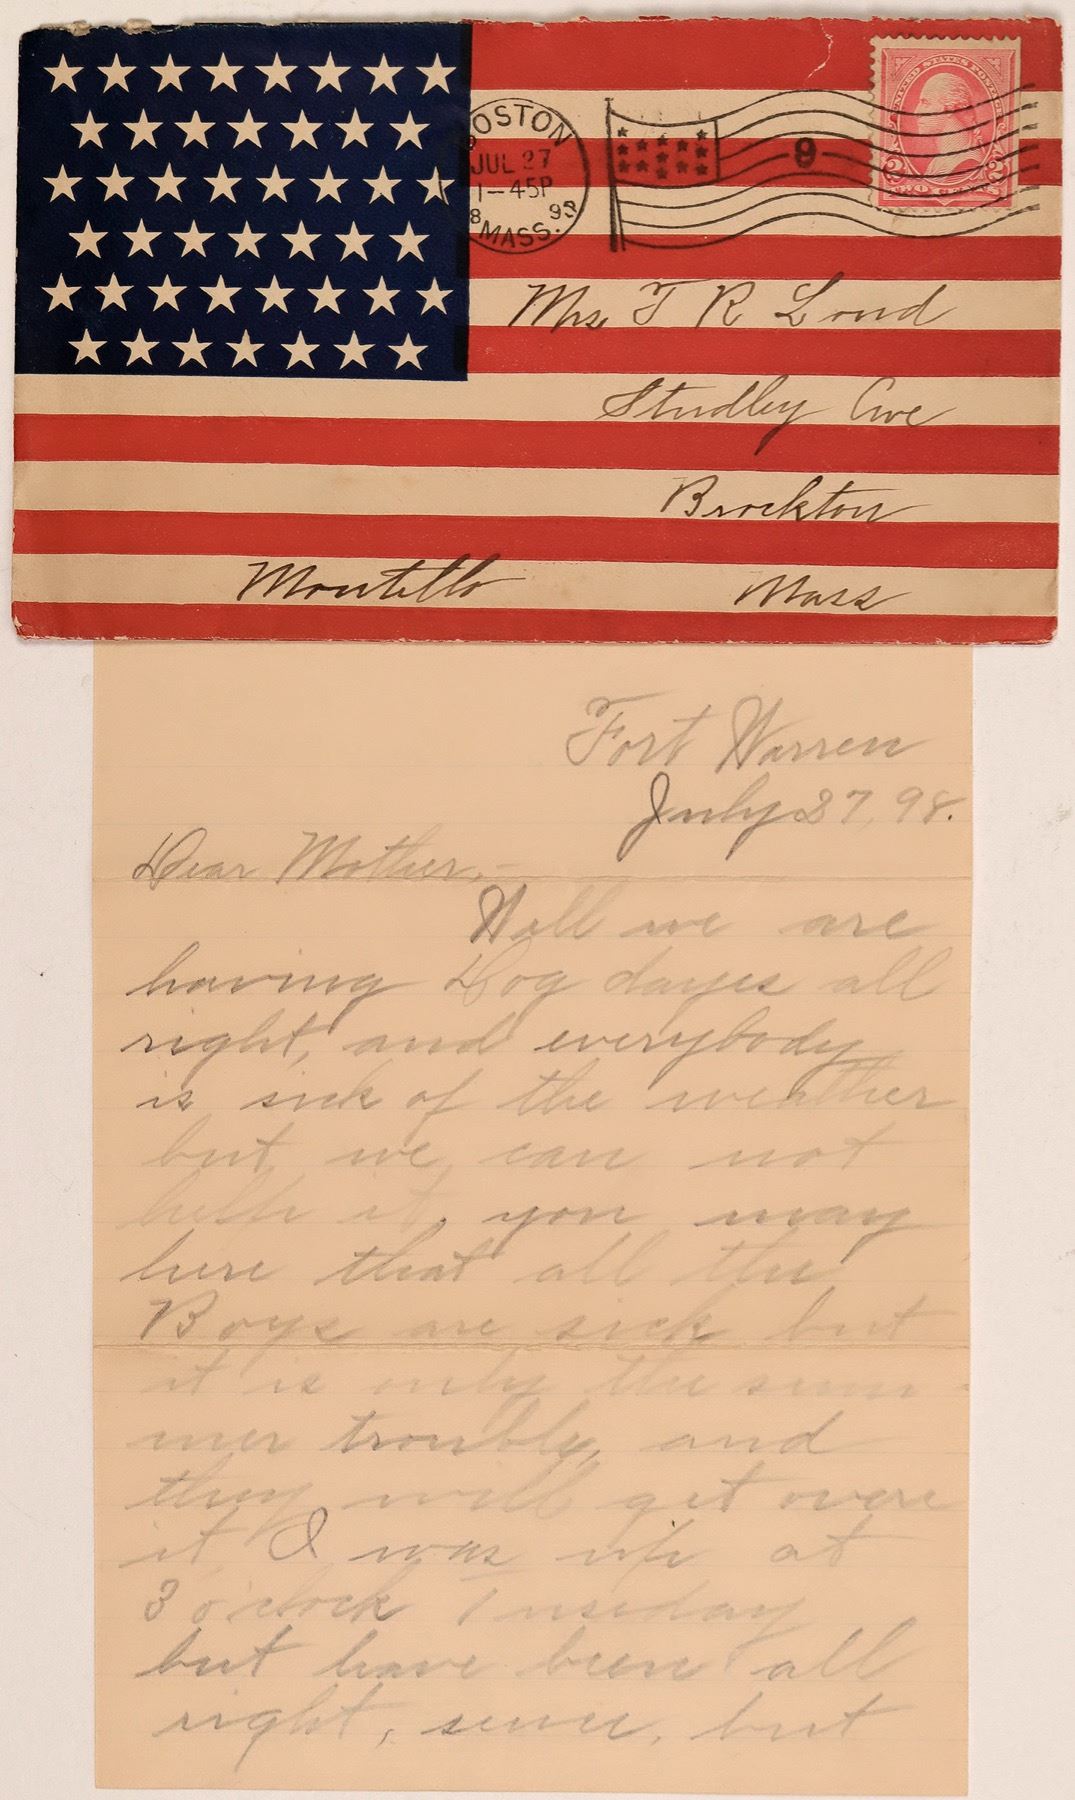 BOSTON
JUL 27
1-45P
8 98
MASS.
9
UNITED STATES POSTAGE
2 2
TWO CENTS
Mrs T R Loud
Studley Ave
Brockton
Montello Mass
Fort Warren
July 27, 98.
Dear Mother,-
Well we are
having Dog dayes all
right, and everybody
is sick of the weather
but we can not
help it, you may
here that all the
Boys are sick but
it is only the sum
mer trouble, and
they will get overe
it, I was up at
3 o'clock Tuseday
but have been all
right, since, but